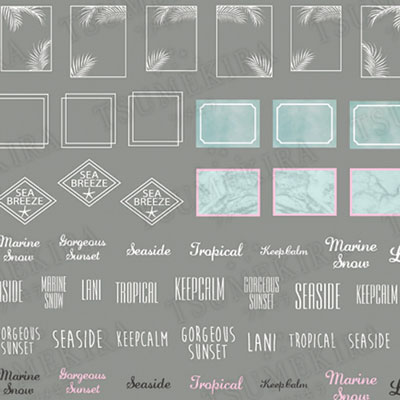 TSUMEKIRA
TSUMEKIRA
SEA
BREEZE
SEA
BREEZE
SEA
BREEZE
Marine
Snow
Gorgeous
Sunset
Seaside
Tropical
Keep Calm
Marine
Snow
SIDE
MARINE
SNOW
LANI
TROPICAL
KEEPCALM
GORGEOUS
SUNSET
SEASIDE
KEEPCALM
GORGEOUS
SUNSET
SEASIDE
KEEPCALM
GORGEOUS
SUNSET
LANI
TROPICAL
SEASIDE
Marine
Snow
Gorgeous
Sunset
Seaside
Tropical
Keep Calm
Marine
Snow